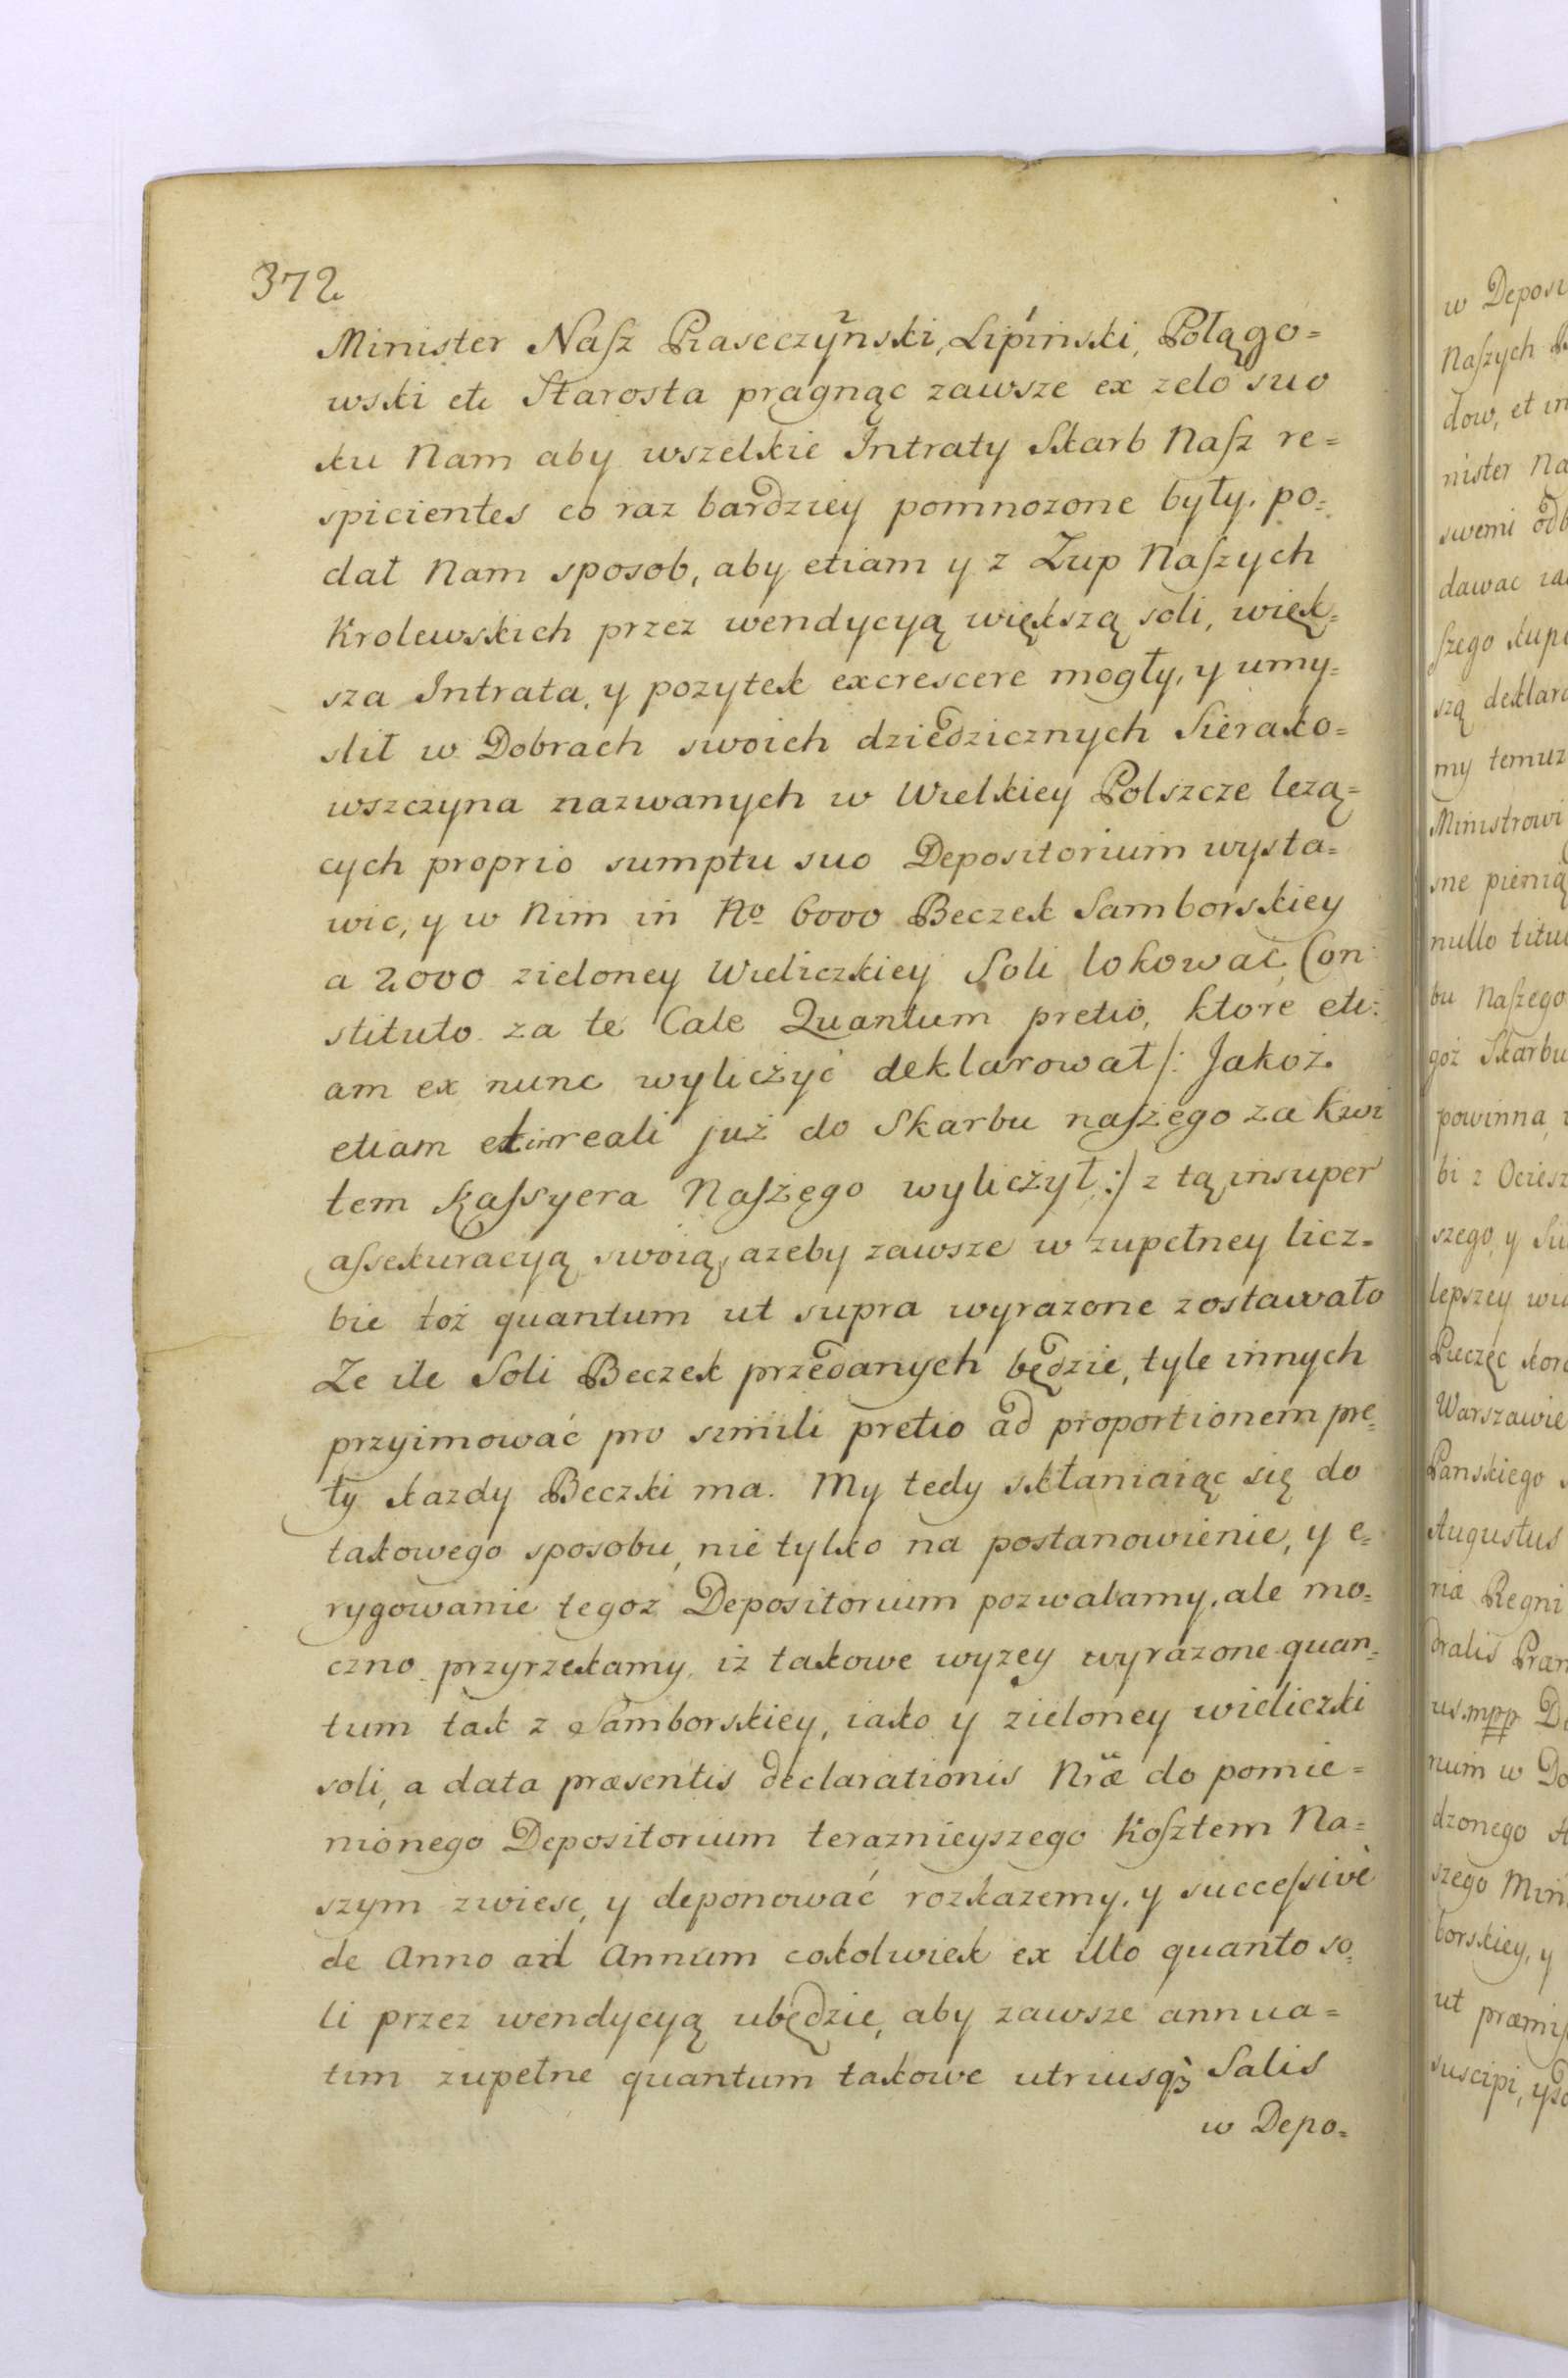 372
Minister Naſz Piaseczyński, Lipiński, Połągo=
wski etc Starosta pragnąc zawsze ex zelo suo
ku Nam aby wszelkie Intraty Skarb Naſz re=
spicientes co raz bardziey pomnozone były, po=
dał Nam sposob, aby etiam y z Zup Naſzych
Krolewskich przez wendycyą większą soli, więk=
sza Intrata, y pozytek excrescere mogły, y umy=
slił w Dobrach swoich dziedzicznych Sierako=
wszczyna nazwanych w Wielkiey Polszcze lezą=
cych proprio sumptu suo Depositorium wysta=
wic, y w Nim in No 6000 Beczek Samborskiey
a 2000 zieloney Wieliczkiey Soli lokować, Con=
stituto za te Cale Quantum pretio, ktore eti=
am ex nunc wyliczyć deklarował /: Jakoż
etiam et in reali już do Skarbu naſzego za kwi
tem Kaſsyera Naſzego wyliczył :/ z tą insuper
aſsekuracyą swoią, azeby zawsze w zupełney licz=
bie toż quantum ut supra wyrazone zostawało
Ze ile Soli Beczek przedanych będzie, tyle innych
przyimować pro simili pretio ad proportionem pre=
ty kazdy Beczki ma. My tedy skłaniaiąc się do
takowego sposobu, nie tylko na postanowienie, y e=
rygowanie tegoż Depositorium pozwalamy, ale mo=
czno przyrzekamy, iż takowe wyzey wyrazone quan=
tum tak z Samborskiey, iako y zieloney wieliczki
soli, a data præsentis declarationis Nræ do pomie=
nionego Depositorium teraznieyszego Koſztem Na=
szym zwiesc, y deponować rozkazemy, y succeſsivè
de Anno ad Annum cokolwiek ex illo quanto so=
li przez wendycyą ubędzie, aby zawsze annua=
tim zupełne quantum takowe utriusqꝫ Salis
w Depo=
w Deposi
Naſzych
dow, et in
nister Na
swemi odb
dawac
ſzego kup
szą deklar
my temuz
Ministrowi
sne pienią
nullo titu
bu Naſzego
goż Skarbu
powinna
bi z Ociesz
szego, y Su
lepszey wi
Pieczęc kor
Warszawie
Panskiego
Augustus
niæ Regni
dralis Præn
us mpp D
rium w Do
dzonego
szego Min
borskiey, y
ut præmiſ
suscipi,